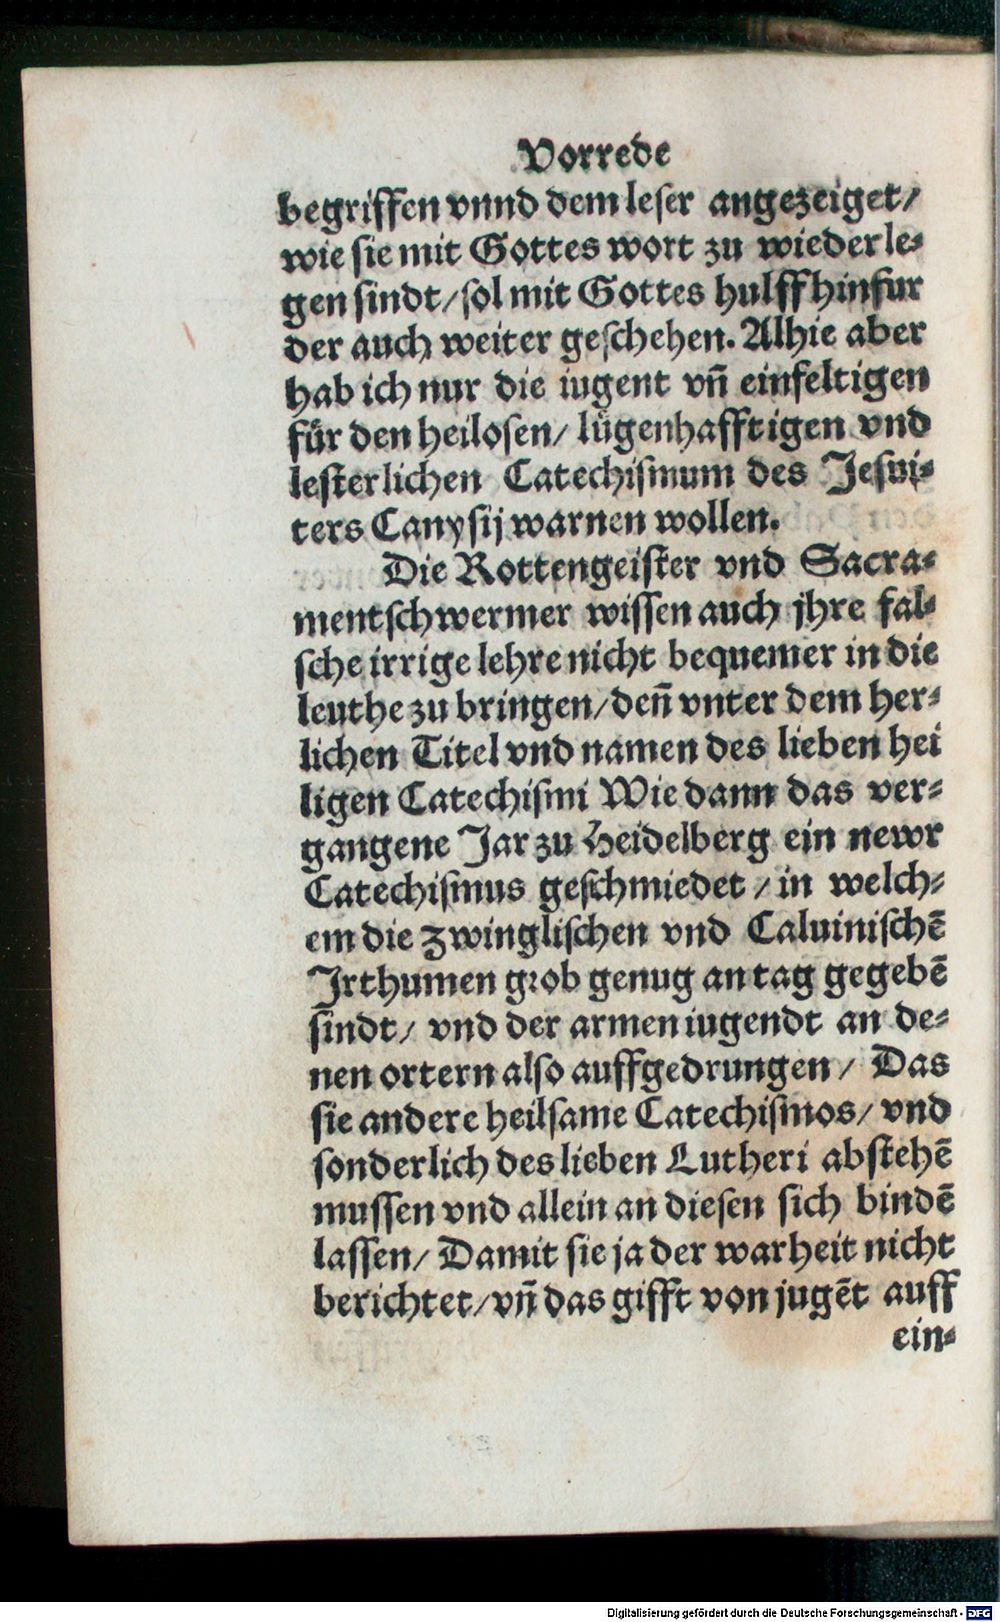 Vorrede
begriffen vnnd dem leser angezeiget/
wie sie mit Gottes wort zu wiederle-
gen sindt/sol mit Gottes hulff hinfur
der auch weiter geschehen. Alhie aber
hab ich nur die iugent vñ einfeltigen
für den heilosen/ lügenhafftigen vnd
lesterlichen Catechismum des Jesui-
ters Canysij warnen wollen.
Die Rottengeister vnd Sacra-
mentschwermer wissen auch jhre fal-
sche irrige lehre nicht bequemer in die
leuthe zu bringen/deñ vnter dem her-
lichen Titel vnd namen des lieben hei
ligen Catechismi Wie dann das ver-
gangene Jar zu Heidelberg ein newr
Catechismus geschmiedet/in welch-
em die Zwinglischen vnd Caluinischẽ
Jrthumen grob genug an tag gegebẽ
sindt/ vnd der armen iugendt an de-
nen ortern also auffgedrungen/ Das
sie andere heilsame Catechismos/ vnd
sonderlich des lieben Lutheri abstehẽ
mussen vnd allein an diesen sich bindẽ
lassen/ Damit sie ja der warheit nicht
berichtet/vñ das gifft von jugẽt auff
ein-
Digitalisierung gefördert durch die Deutsche Forschungsgemeinschaft - DFG